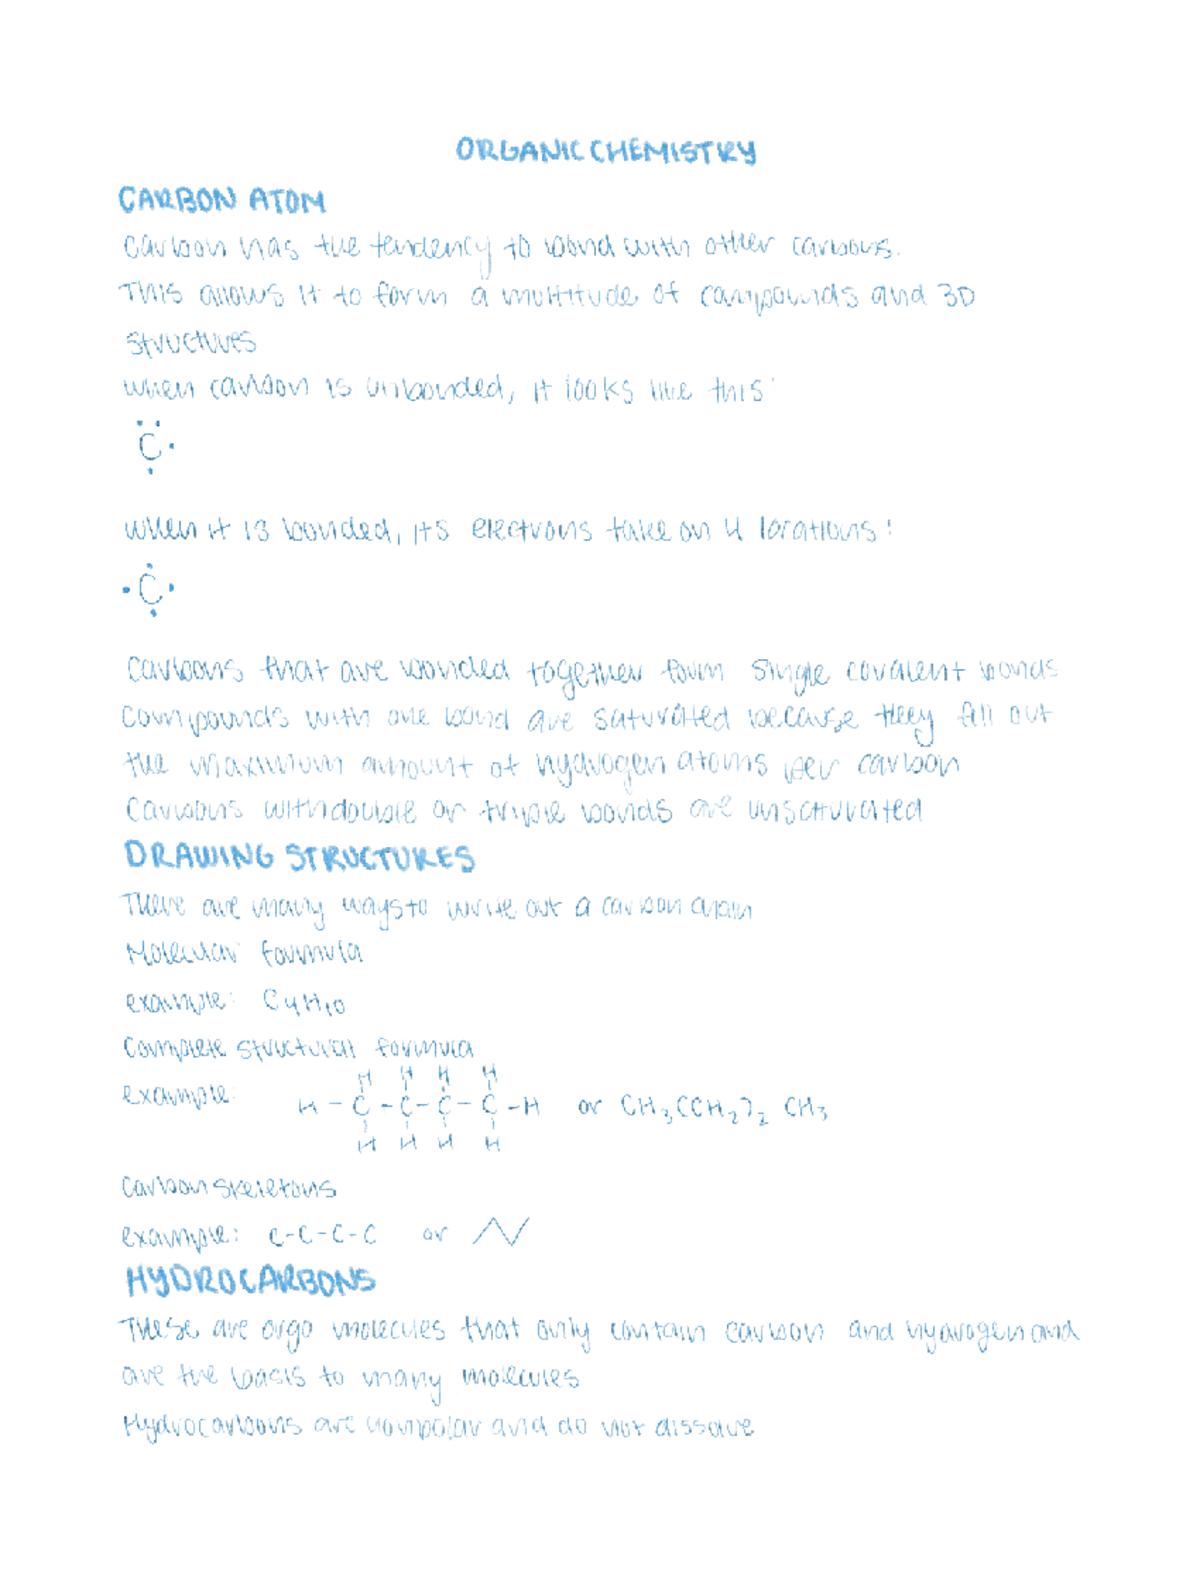 ORGANIC CHEMISTRY
CARBON ATOM
Carbon has the tendency to bond with other carbons.
This allows it to form a multitude of compounds and 3D
structures
when carbon is unbonded, it looks like this:
C
when it is bonded, its electrons take on 4 locations:
C
Carbons that are bonded together form single covalent bonds
Compounds with one bond are saturated because they fill out
the maximum amount of hydrogen atoms per carbon
Carbons with double or triple bonds are unsaturated
DRAWING STRUCTURES
There are many ways to write out a carbon chain
Molecular formula
example: C4H10
Complete structural formula
H H H H
example: H - C - C - C - C - H or CH3(CH2)2 CH3
H H H H
Carbon skeletons
example: C-C-C-C or
HYDROCARBONS
These are orgo molecules that only contain carbon and hydrogen and
are the basis to many molecules
Hydrocarbons are nonpolar and do not dissolve